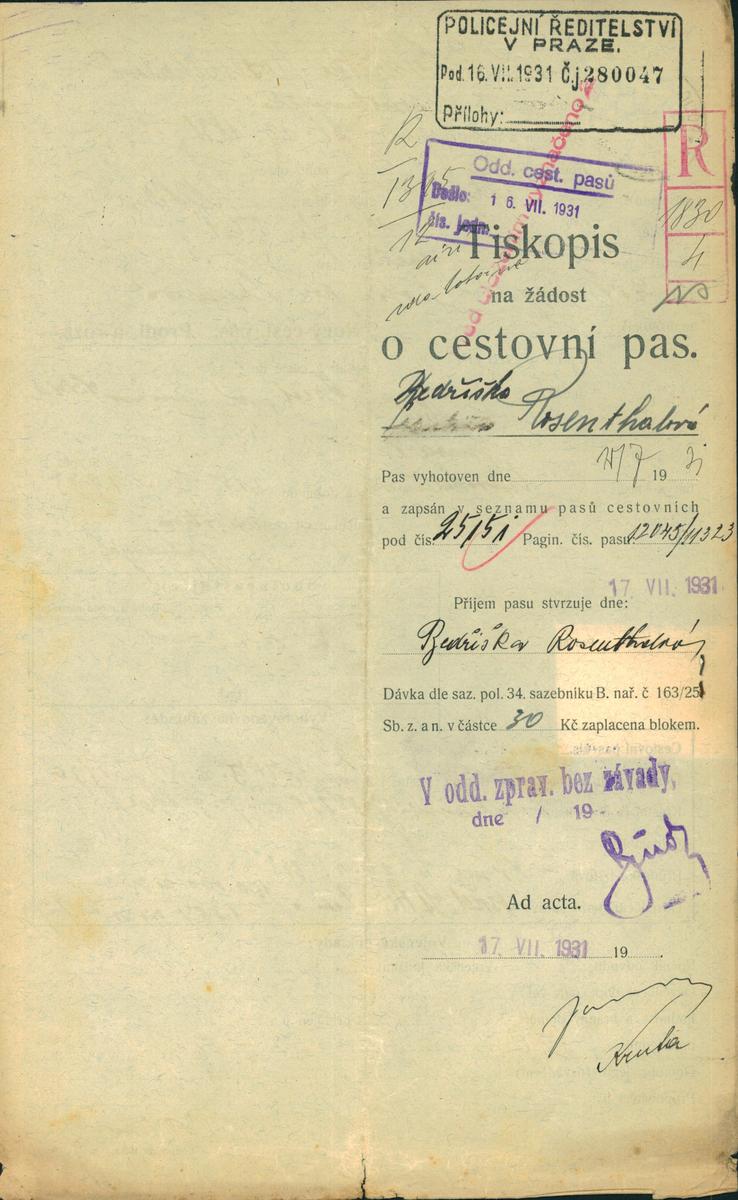 POLICEJNÍ ŘEDITELSTVÍ
V PRAZE.
Pod. 16. VII. 1931 Č.j. 280047
Přílohy:
R
1830
4
Odd. cest. pasů
Došlo: 16. VII. 1931
čís. jedn.
Tiskopis
na žádost
o cestovní pas.
Bedřiška
Rosenthalová
Pas vyhotoven dne 17/7 19 31
a zapsán v seznamu pasů cestovních
pod čís. Pagin. čís. pasu 12045/11323
17. VII. 1931
Příjem pasu stvrzuje dne:
Bedřiška Rosenthalová
Dávka dle saz. pol. 34. sazebníku B. nař. č 163/25
Sb. z. a n. v částce 30 Kč zaplacena blokem.
V odd. zprav. bez závady,
dne / 19
Ad acta.
17. VII. 1931 19